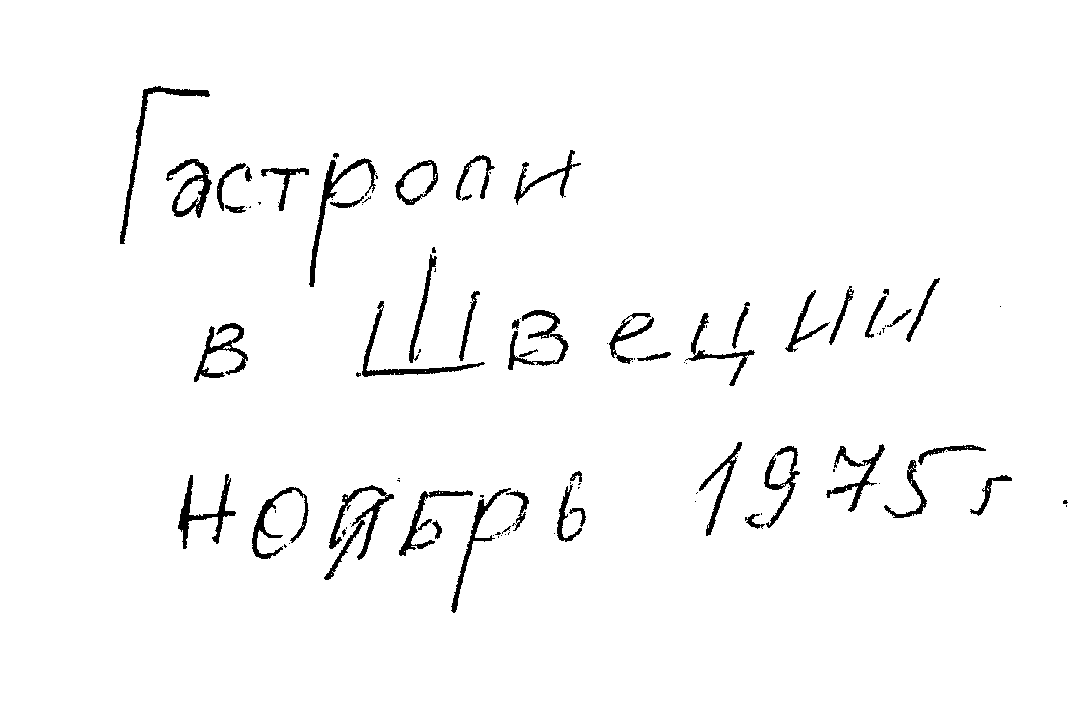 Гастроли
в Швеции
ноябрь 1975 г.